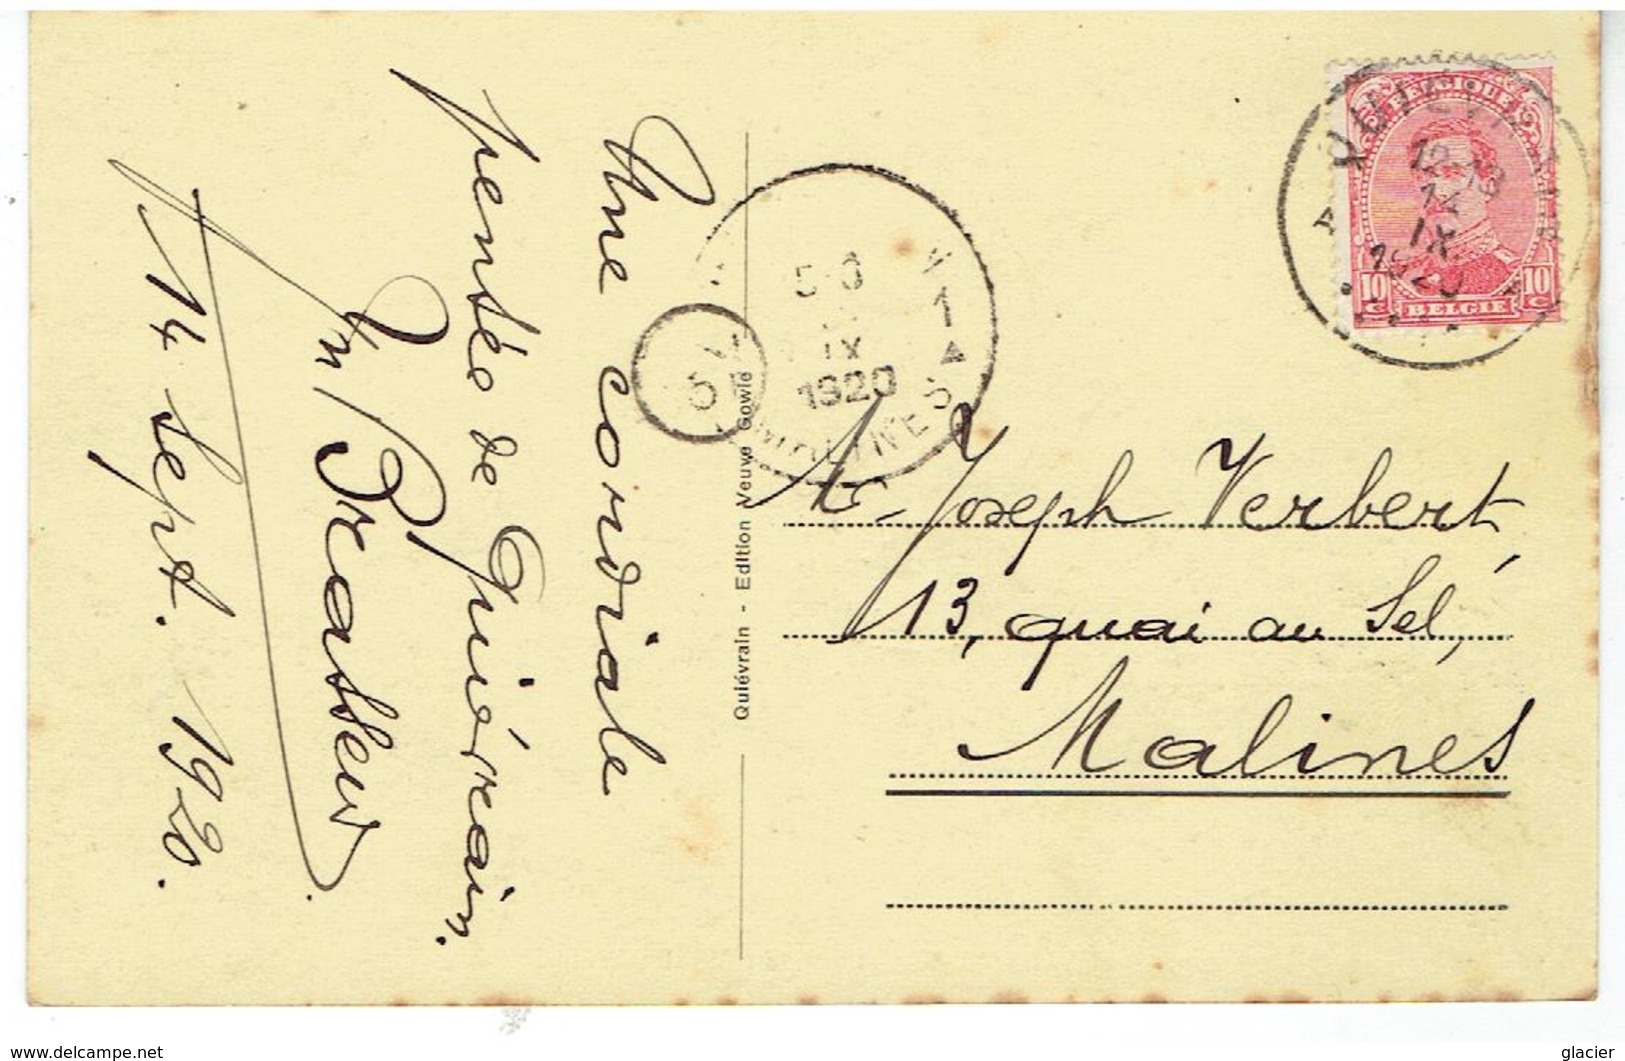 Une cordiale
pensée de Quiévrain.
Brasseur
14 Sept. 1920.
Quiévrain - Edition Veuve Gowie
5-
IX
1920
1
MALINES
5
QUIÉVRAIN
12-13
14
IX
1920
BELGIQUE
10 C 10 C
BELGIE
Joseph Verbert
13, quai au Sel,
Malines
www.delcampe.net
glacier